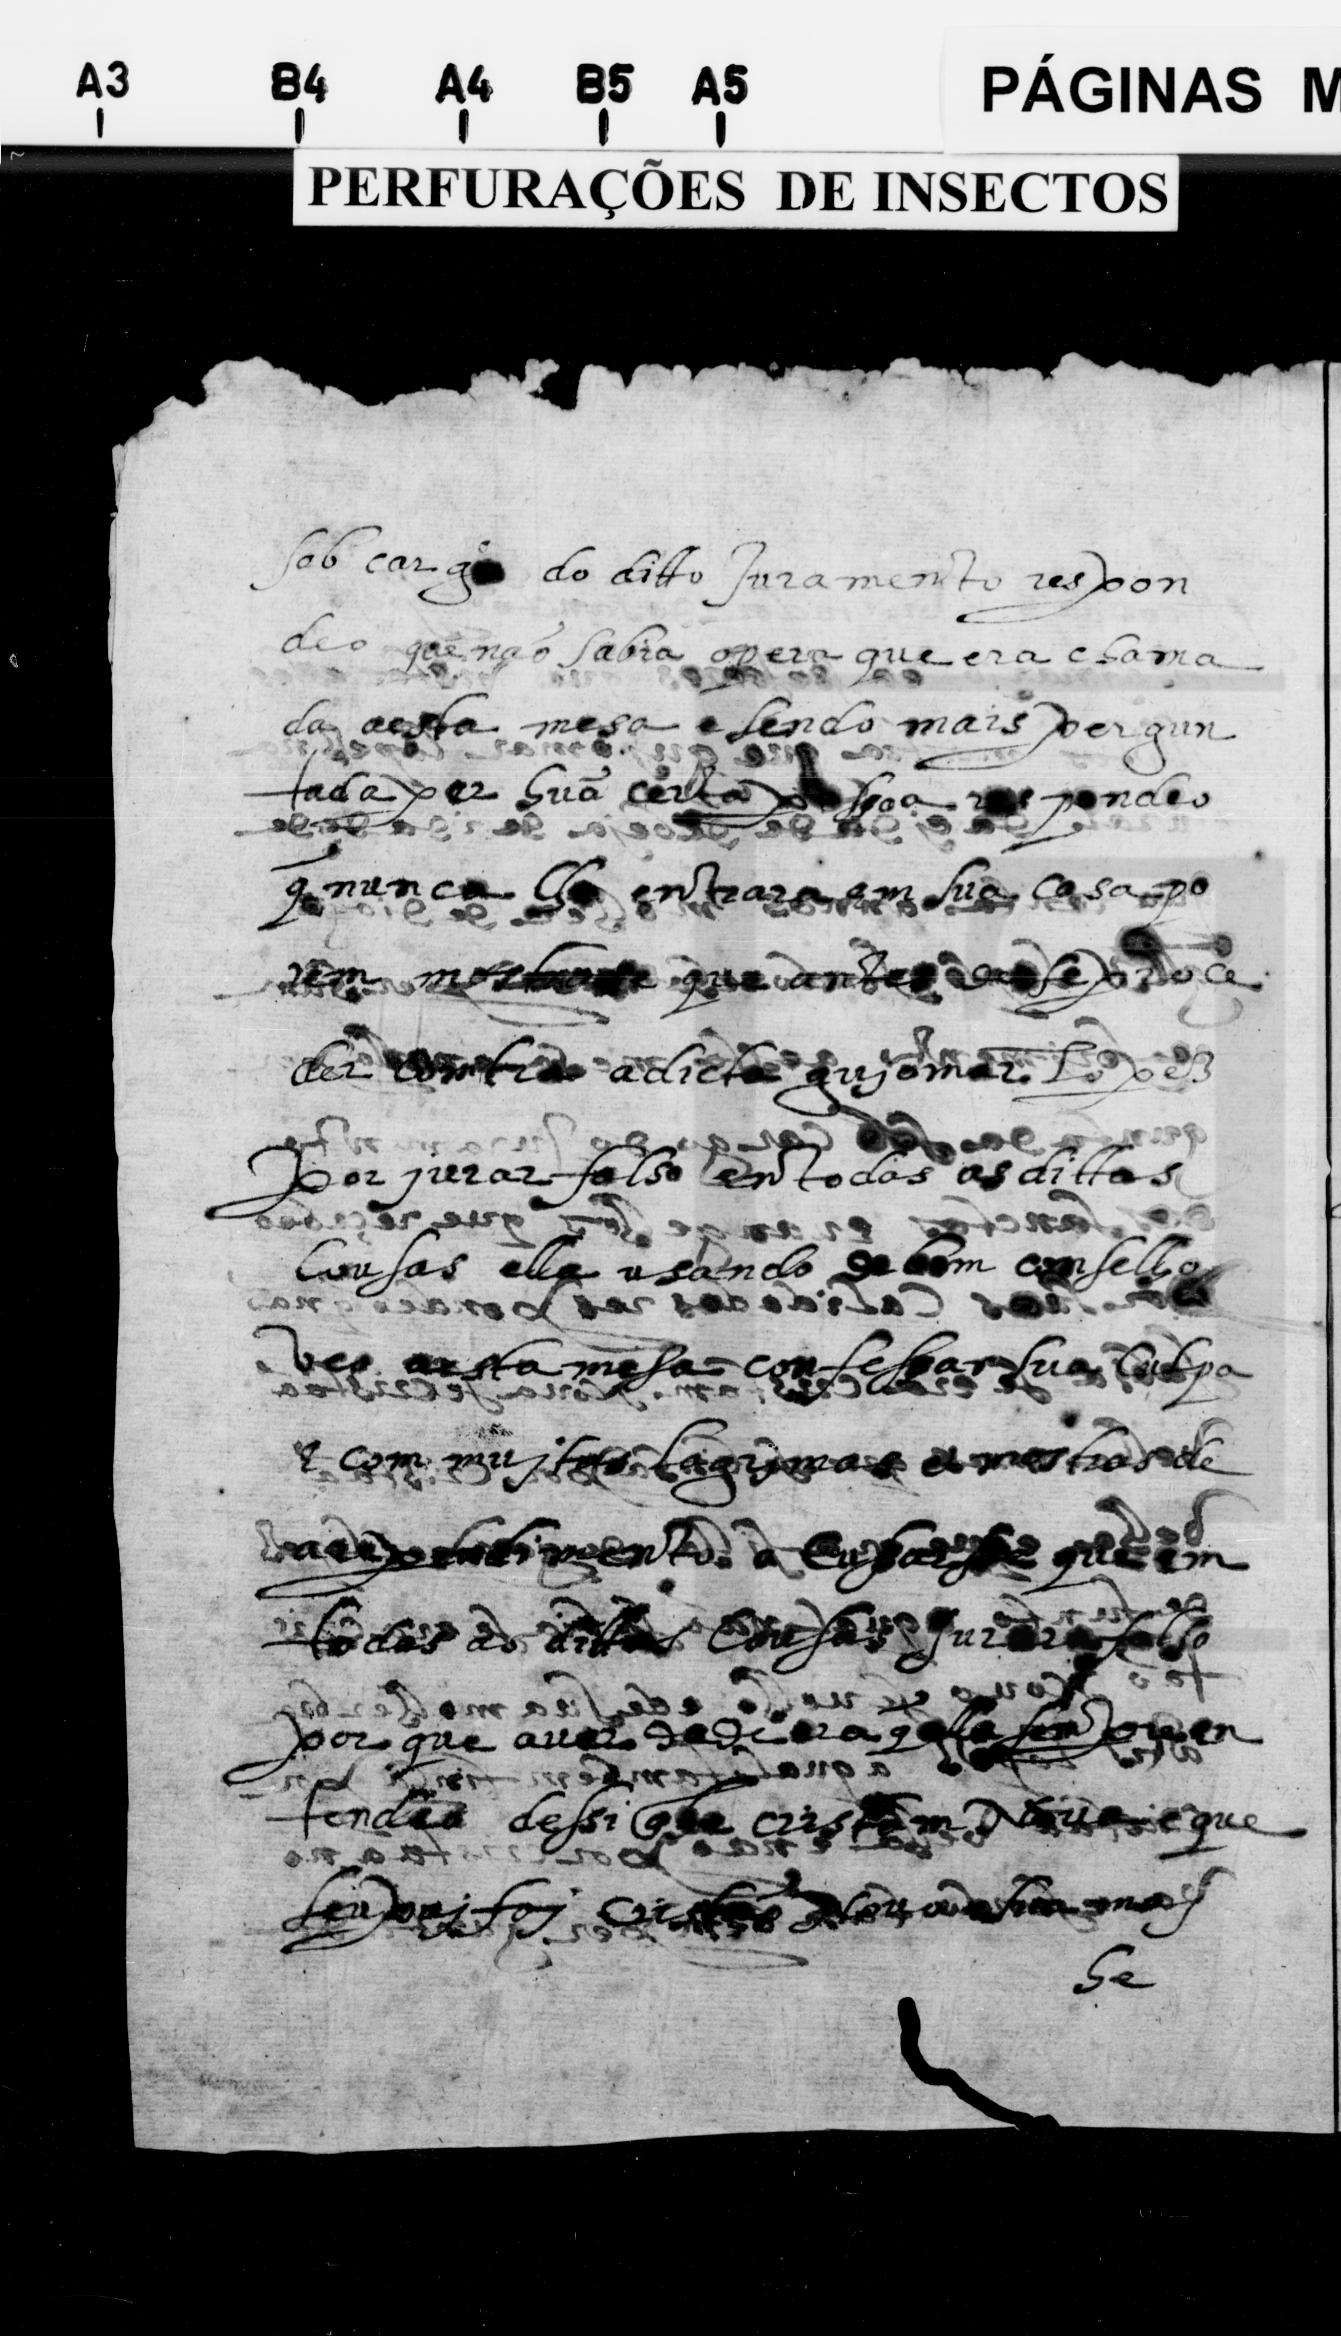 A3 B4 A4 B5 A5
PÁGINAS M
PERFURAÇÕES DE INSECTOS
sob cargo do ditto Juramento respon
deo que não sabia opera que era chama
da aesta mesa e sendo mais pergun
tada per huã certa pessoa respondeo
q̃ nunca lhe entrara em sua casa po
rem que antes de se proce
der contra adicta gujomar Lopez
por jurar falso en todas as dittas
Cousas ella usando de bom conselho
veo aesta mesa confessar sua Culpa
e com mujtas lagrimas e mostras de
arependimento que em
todas as dittas Cousas Jurara falso
por que auer de
tendia dessi que cristam Noua e que
seu paj foj cristão Nouo e sua maj
he